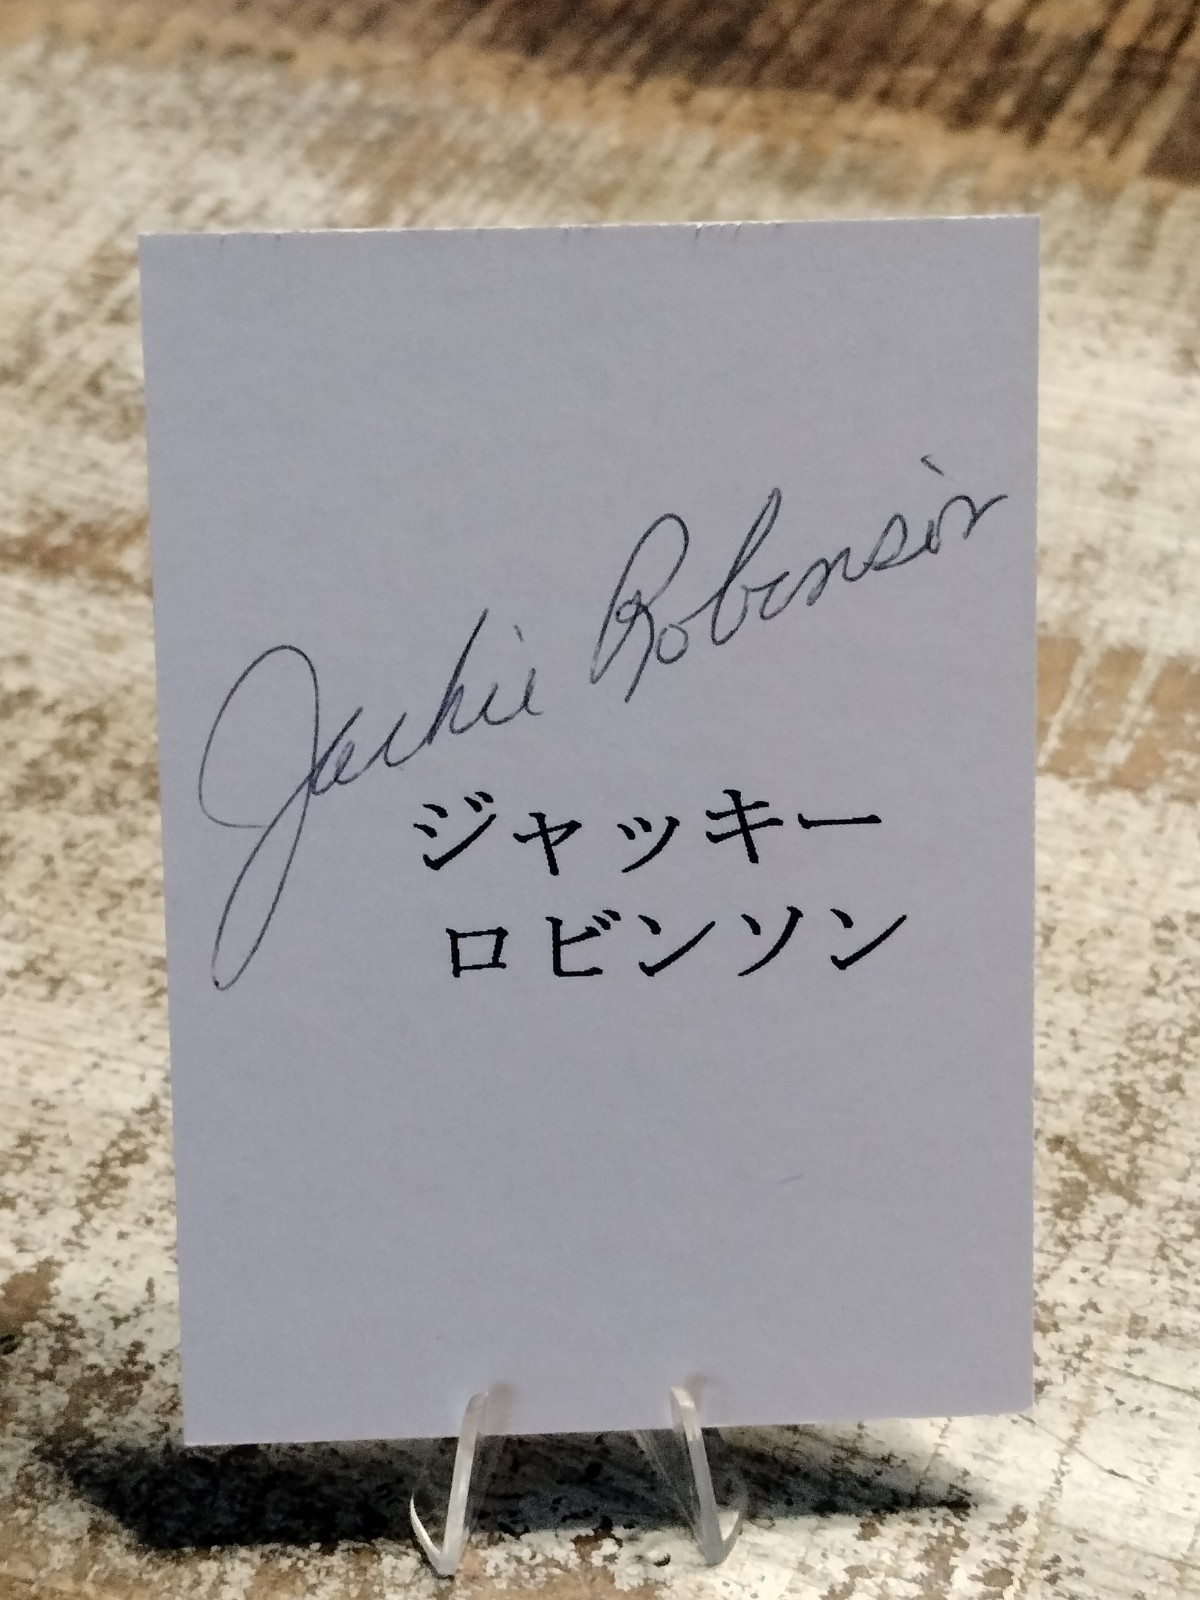 Jackie Robinson
ジャッキー
ロビンソン